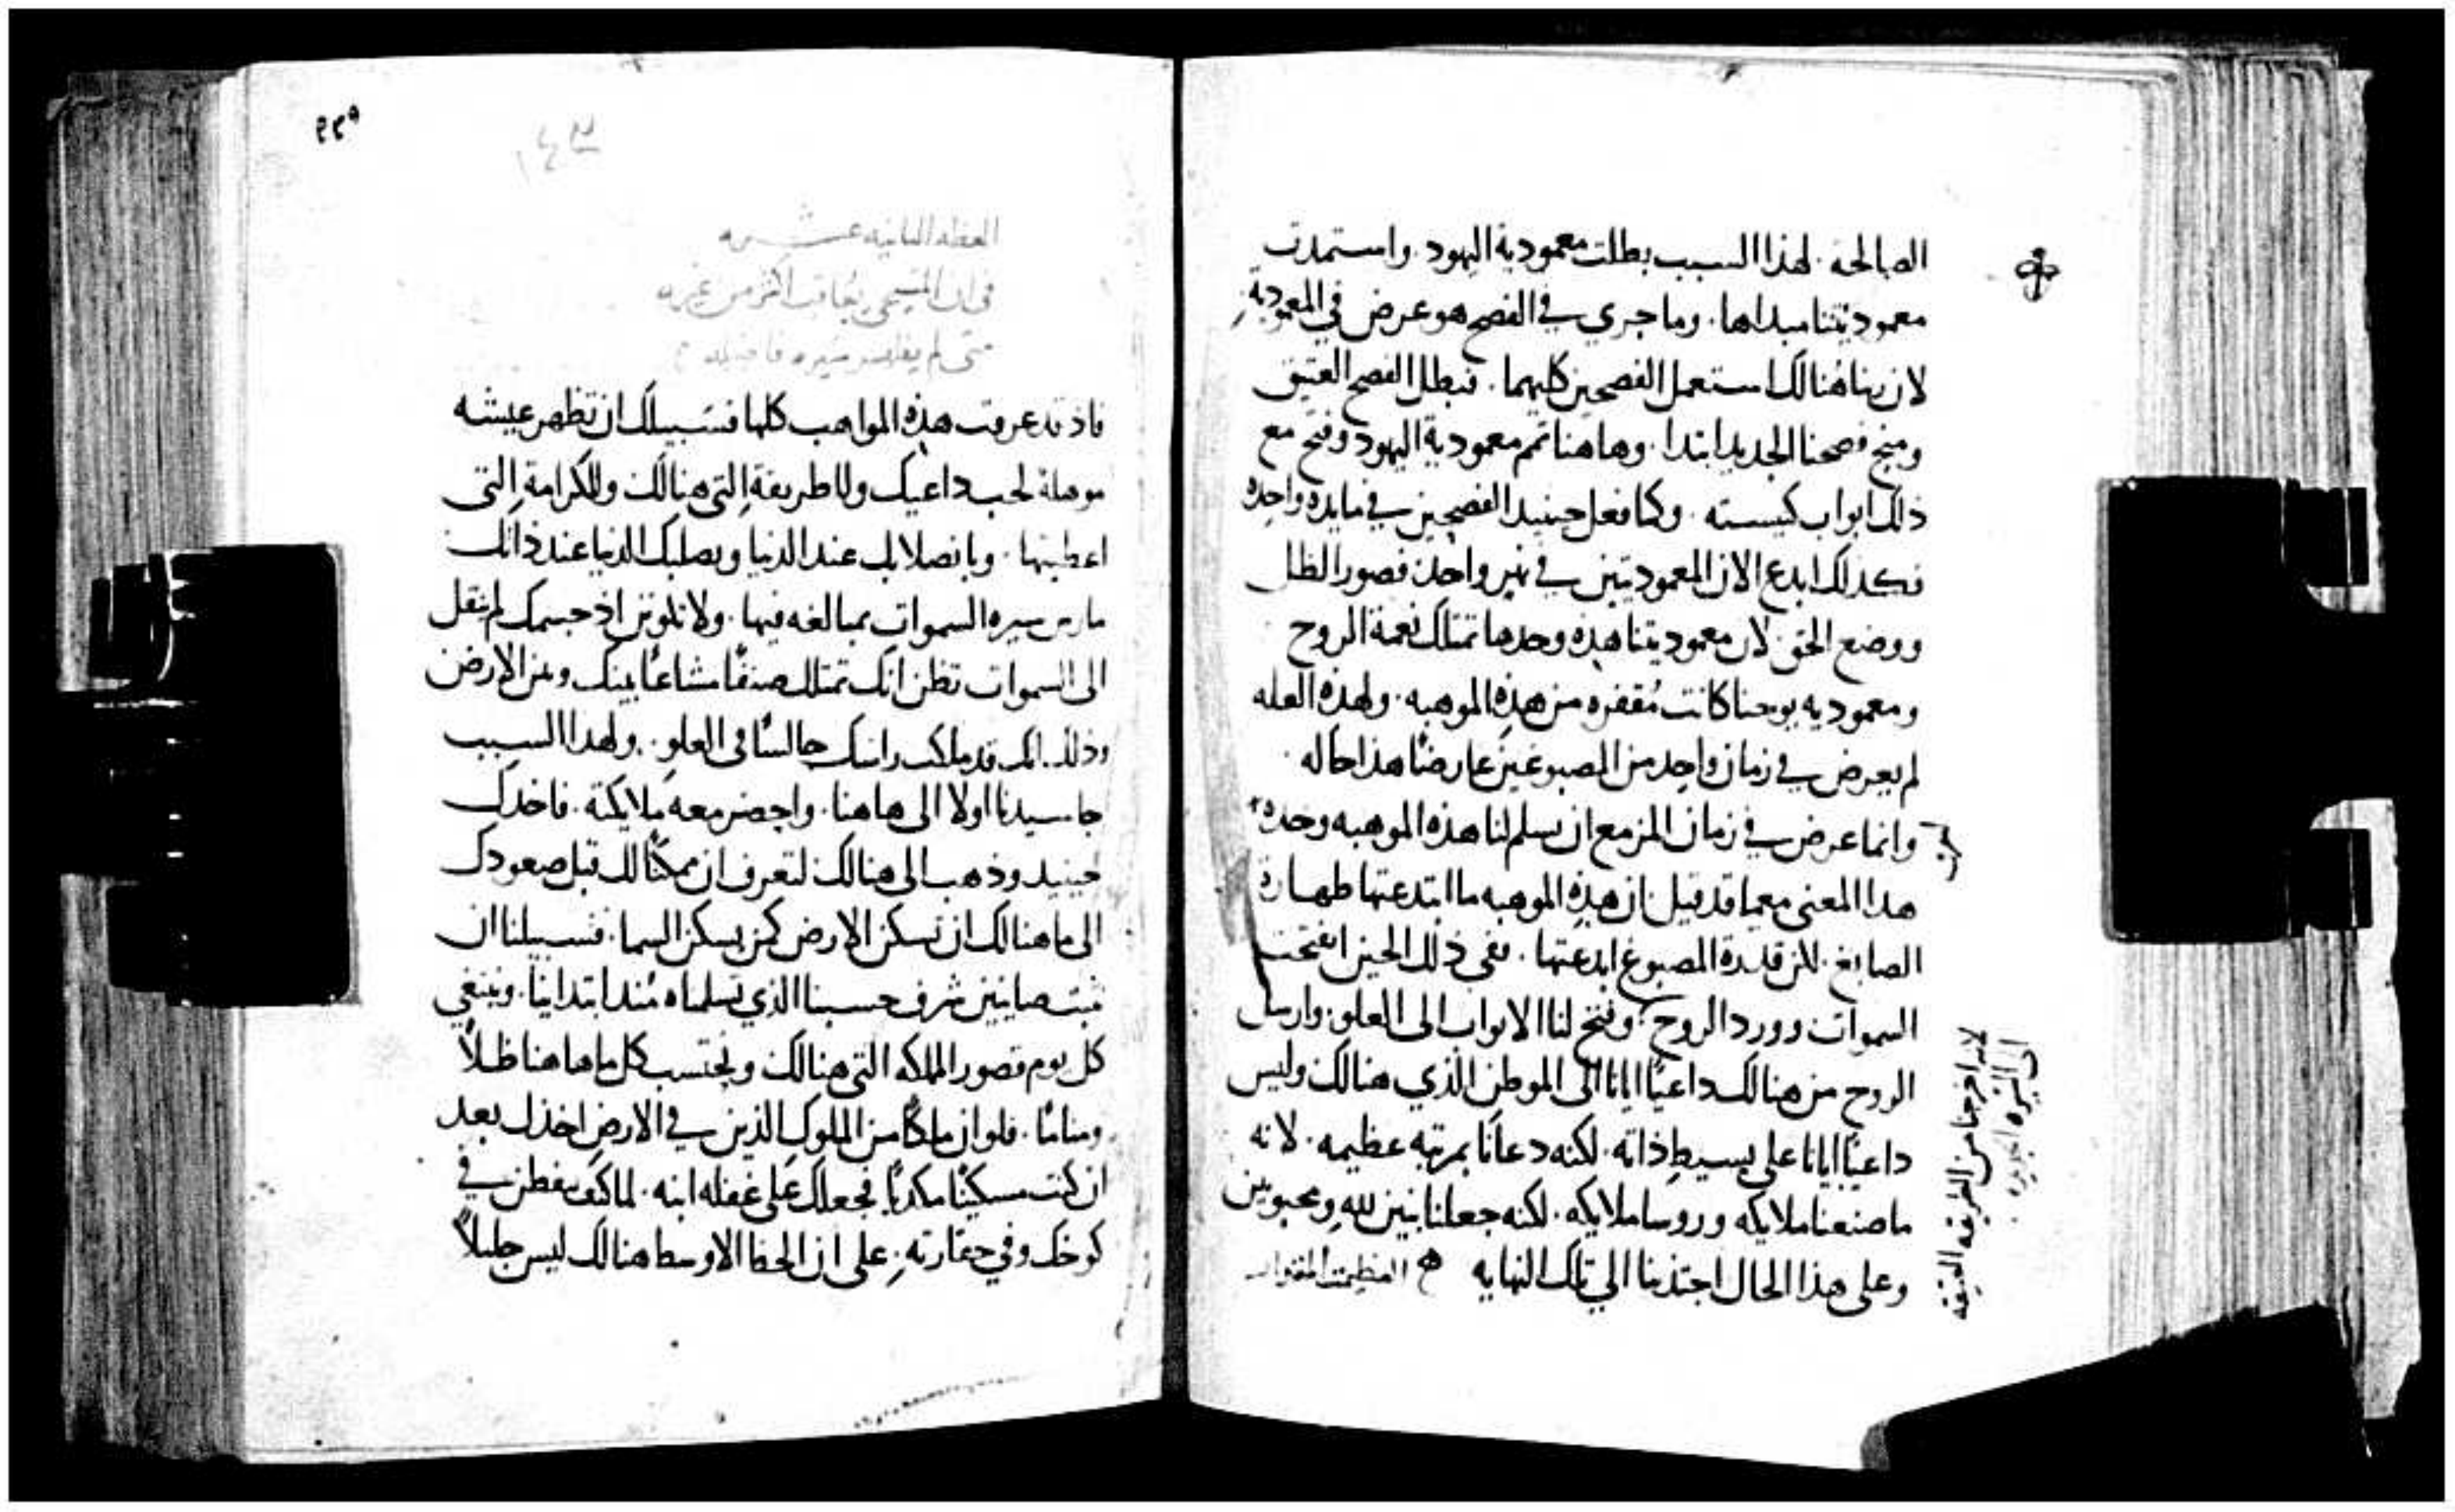 الصالحه. لهذا السبب بطلت معمودية اليهود. واستمدت
معموديتنا مبداها. وما جري في الفصح هو عرض في المعمودية
لان ربنا هنالك استعمل الفصحين كليهما. فبطل الفصح العتيق
ومنح فصحنا الجديد ابتدا. وهاهنا تمم معمودية اليهود وفتح مع
ذلك ابواب كنيسته. وكما فعل حينيد الفصحين في مايده واحده
فكذلك ابدع الان المعموديتين في نهر واحد فصور الظل
ووضع الحق لان معموديتنا هذه وحدها تمتلك نعمة الروح
ومعموديه يوحنا كانت مُقفره من هذه الموهبه. ولهذه العله
لم يعرض في زمان واحد من المصبوغين عارضًا هذا حاله.
وانما عرض في زمان المزمع ان يسلم لنا هذه الموهبه وحده
هذا المعنى معما قد قيل ان هذه الموهبه ما ابتدعتها طهارة
الصابغ. لان قدرة المصبوغ ابدعتها. ففي ذلك الحين انفتحت
السموات وورد الروح. وفتح لنا الابواب الى العلو. وارسل
الروح من هنالك داعيًا ايانا الى الموطن الذي هنالك وليس
داعيًا ايانا على بسيط ذاته. لكنه دعانا بمرتبه عظيمه. لانه
ما صنعنا ملايكه وروسا ملايكه. لكنه جعلنا بنين لله ومحبوبين
وعلى هذا الحال اجتذبنا الي تلك النهايه
لانه اخرجنا من الطريقه العتيقه
الى السيره الجديده
٢٢٩
١٤٣
العظه الثانيه عشره
في ان المسيحي يُعاقب اكثر من غيره
متى لم يعش سيره فاضله
فاذ قد عرفت هذه المواهب كلها فسبيلك ان تظهر عيشه
موهلة لحب داعيك وللطريقة التي هنالك وللكرامة التي
اعطيتها. وبانصلابك عند الدنيا وبصلبك الدنيا عند ذاتك
مارس سيره السموات بمبالغه فيها. ولا تلوتن اذ جسمك لم ينقل
الى السموات تظن انك تمتلك صنفًا مشاعًا بينك وبين الارض
وذلك انك قد ملكت راسك جالسًا في العلو. ولهذا السبب
جا سيدنا اولا الى هاهنا. واحضر معه ملايكته. فاخدك
حينيد وذهب الى هنالك لتعرف ان ممكنًا لك قبل صعودك
الى ما هنالك ان تسكن الارض كمن يسكن السما. فسبيلنا ان
نثبت صاينين شرف حسبنا الذي تسلمناه مند ابتداينا. ونبتغي
كل يوم قصور المملكه التي هنالك ونحتسب كل ما هاهنا ظلًا
ومنامًا. فلو ان ملكًا من الملوك الذين في الارض اخذك بعد
ان كنت مسكينًا مكديًا فجعلك على غفله ابنه. لما كنت تفطن في
كوخك وفي حقارته. على ان الحظ الاوسط هنالك ليس جليلًا